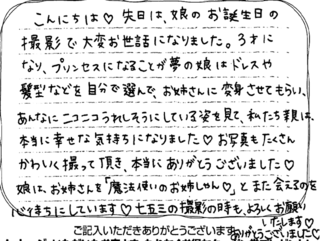 こんにちは♡ 先日は、娘のお誕生日の
撮影で大変お世話になりました。3才に
なり、プリンセスになることが夢の娘はドレスや
髪型などを自分で選んで、お姉さんに変身させてもらい、
あんなにニコニコうれしそうにしている姿を見て、私たち親は、
本当に幸せな気持ちになりました♡ お写真もたくさん
かわいく撮って頂き、本当にありがとうございました♡
娘は、お姉さんを「魔法使いのお姉しゃん♡」とまた会えるのを
心待ちにしています♡ 七五三の撮影の時も、よろしくお願い
いたします♡
ありがとうございました♡
ご記入いただきありがとうございます